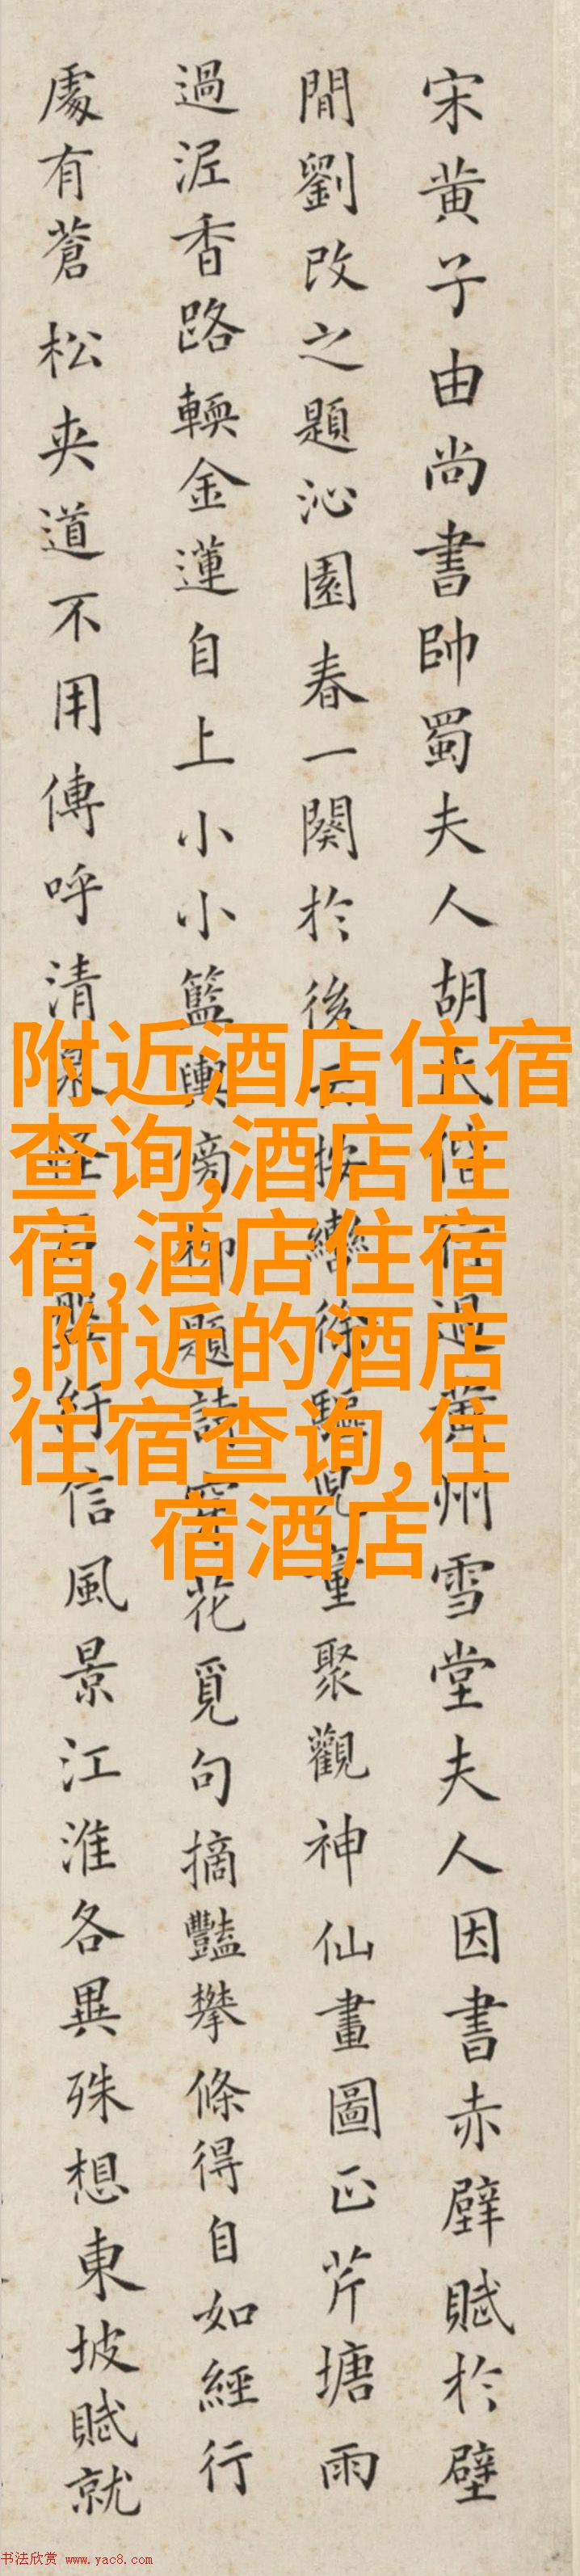 宋黄子由尚書帥蜀夫人胡氏偕行過黄州雪堂夫人因書赤壁賦於壁
間劉改之題沁園春一闋於後云按轡徐驅兒童聚觀神仙畫圖正芹塘雨
過泥香路輭金蓮自上小小籃輿傍柳題詩穿花覓句摘豔攀條得自如經行
處有蒼松夾道不用傳呼清泉怪石盤紆信風景江淮各異殊想東坡賦就
附近酒店住宿
查询,酒店住
宿,酒店住宿
,附近的酒店
住宿查询,住
宿酒店
书法欣赏 www.yac8.com